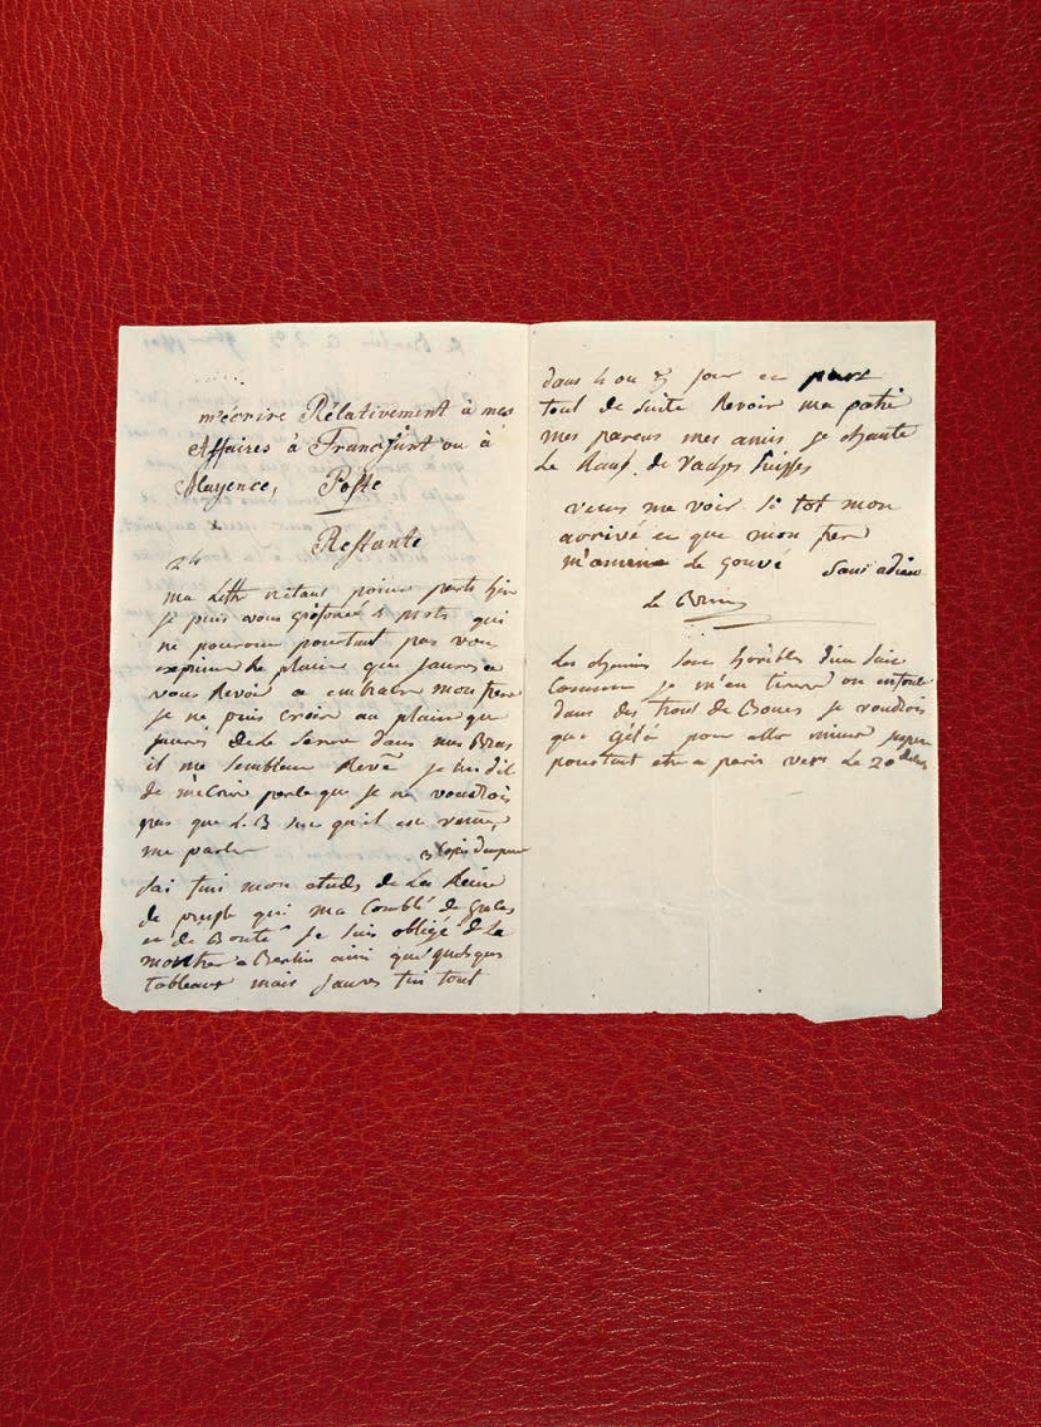 m'écrire Rélativement à mes
Affaires à Francfurt ou à
Mayence, Poste
Restante
24
ma Lettre n'étant point partie hier
je puis vous griffonné 4 mots qui
ne pouront pourtant pas vous
exprimer Le plaisir que jaurés a
vous Revoir a embrasser mon frere
je ne puis croire au plaisir que
jaurés de Le Serrer dans mes Bras
il me Semblera Revé je lui dit
de m'écrire parceque je ne voudrois
pas que L.B qu'il est venu
me parler
Jai fini mon etude de La Reine
de prusse qui ma Comblé de graces
et de Bonté je suis obligé de La
montrer a Berlin ainsi que quelques
tableaux mais jaurés fini tout
dans 4 ou 5 jour et part
tout de suite Revoir ma patrie
mes parens mes amis je chante
Le Ranz de vaches Suisses
venes me voir Si tot mon
arrivé et que mon frere
m'amene Le gouvé Sans adieu
Le Brun
Les chemins Sont horibles dieu Sait
Comment je m'en tirerai on enfonce
dans des trout de Boues je voudrois
que gélé pour aller mieux jespere
pourtant etre a paris vers Le 20